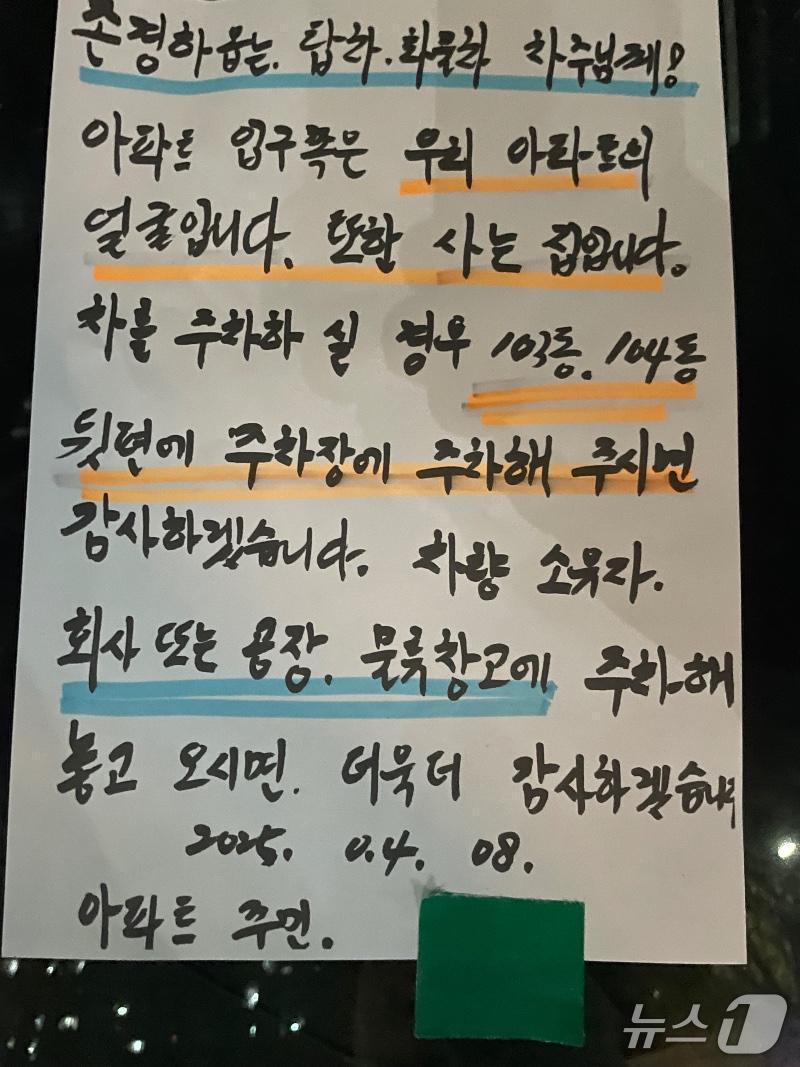 존경하옵는. 탑차. 화물차 차주님께!
아파트 입구쪽은 우리 아파트의
얼굴입니다. 또한 사는 집입니다.
차를 주차하실 경우 103동. 104동
뒷편에 주차장에 주차해 주시면
감사하겠습니다. 차량 소유자.
회사 또는 공장. 물류창고에 주차해
놓고 오시면. 더욱더 감사하겠습니다
2025. 04. 08.
아파트 주민.
뉴스1